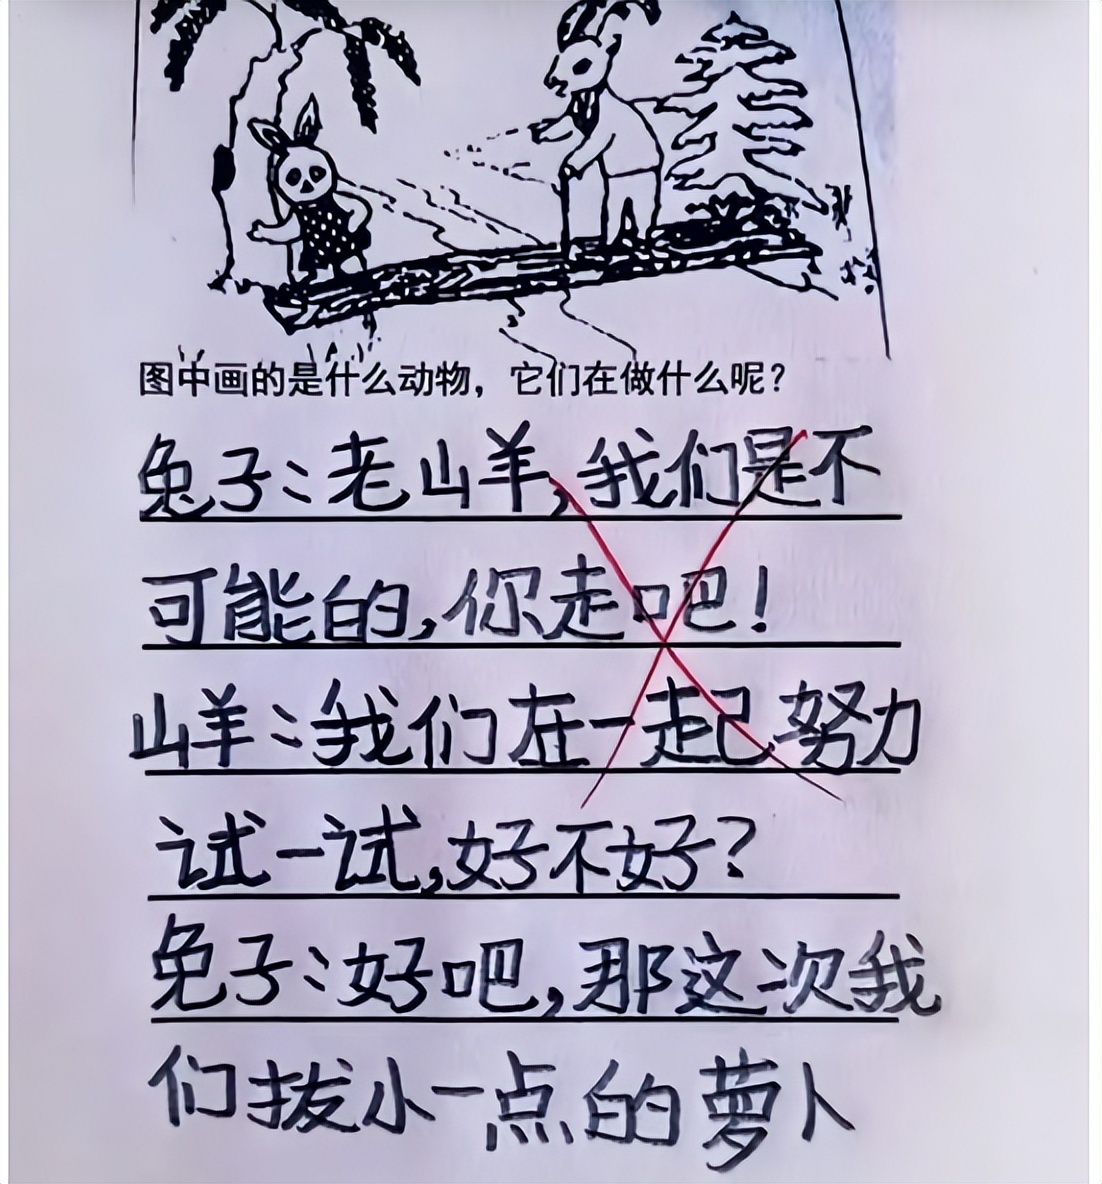 图中画的是什么动物，它们在做什么呢？
兔子：老山羊，我们是不
可能的，你走吧！
山羊：我们在一起努力
试一试，好不好？
兔子：好吧，那这次我
们拔小一点的萝卜